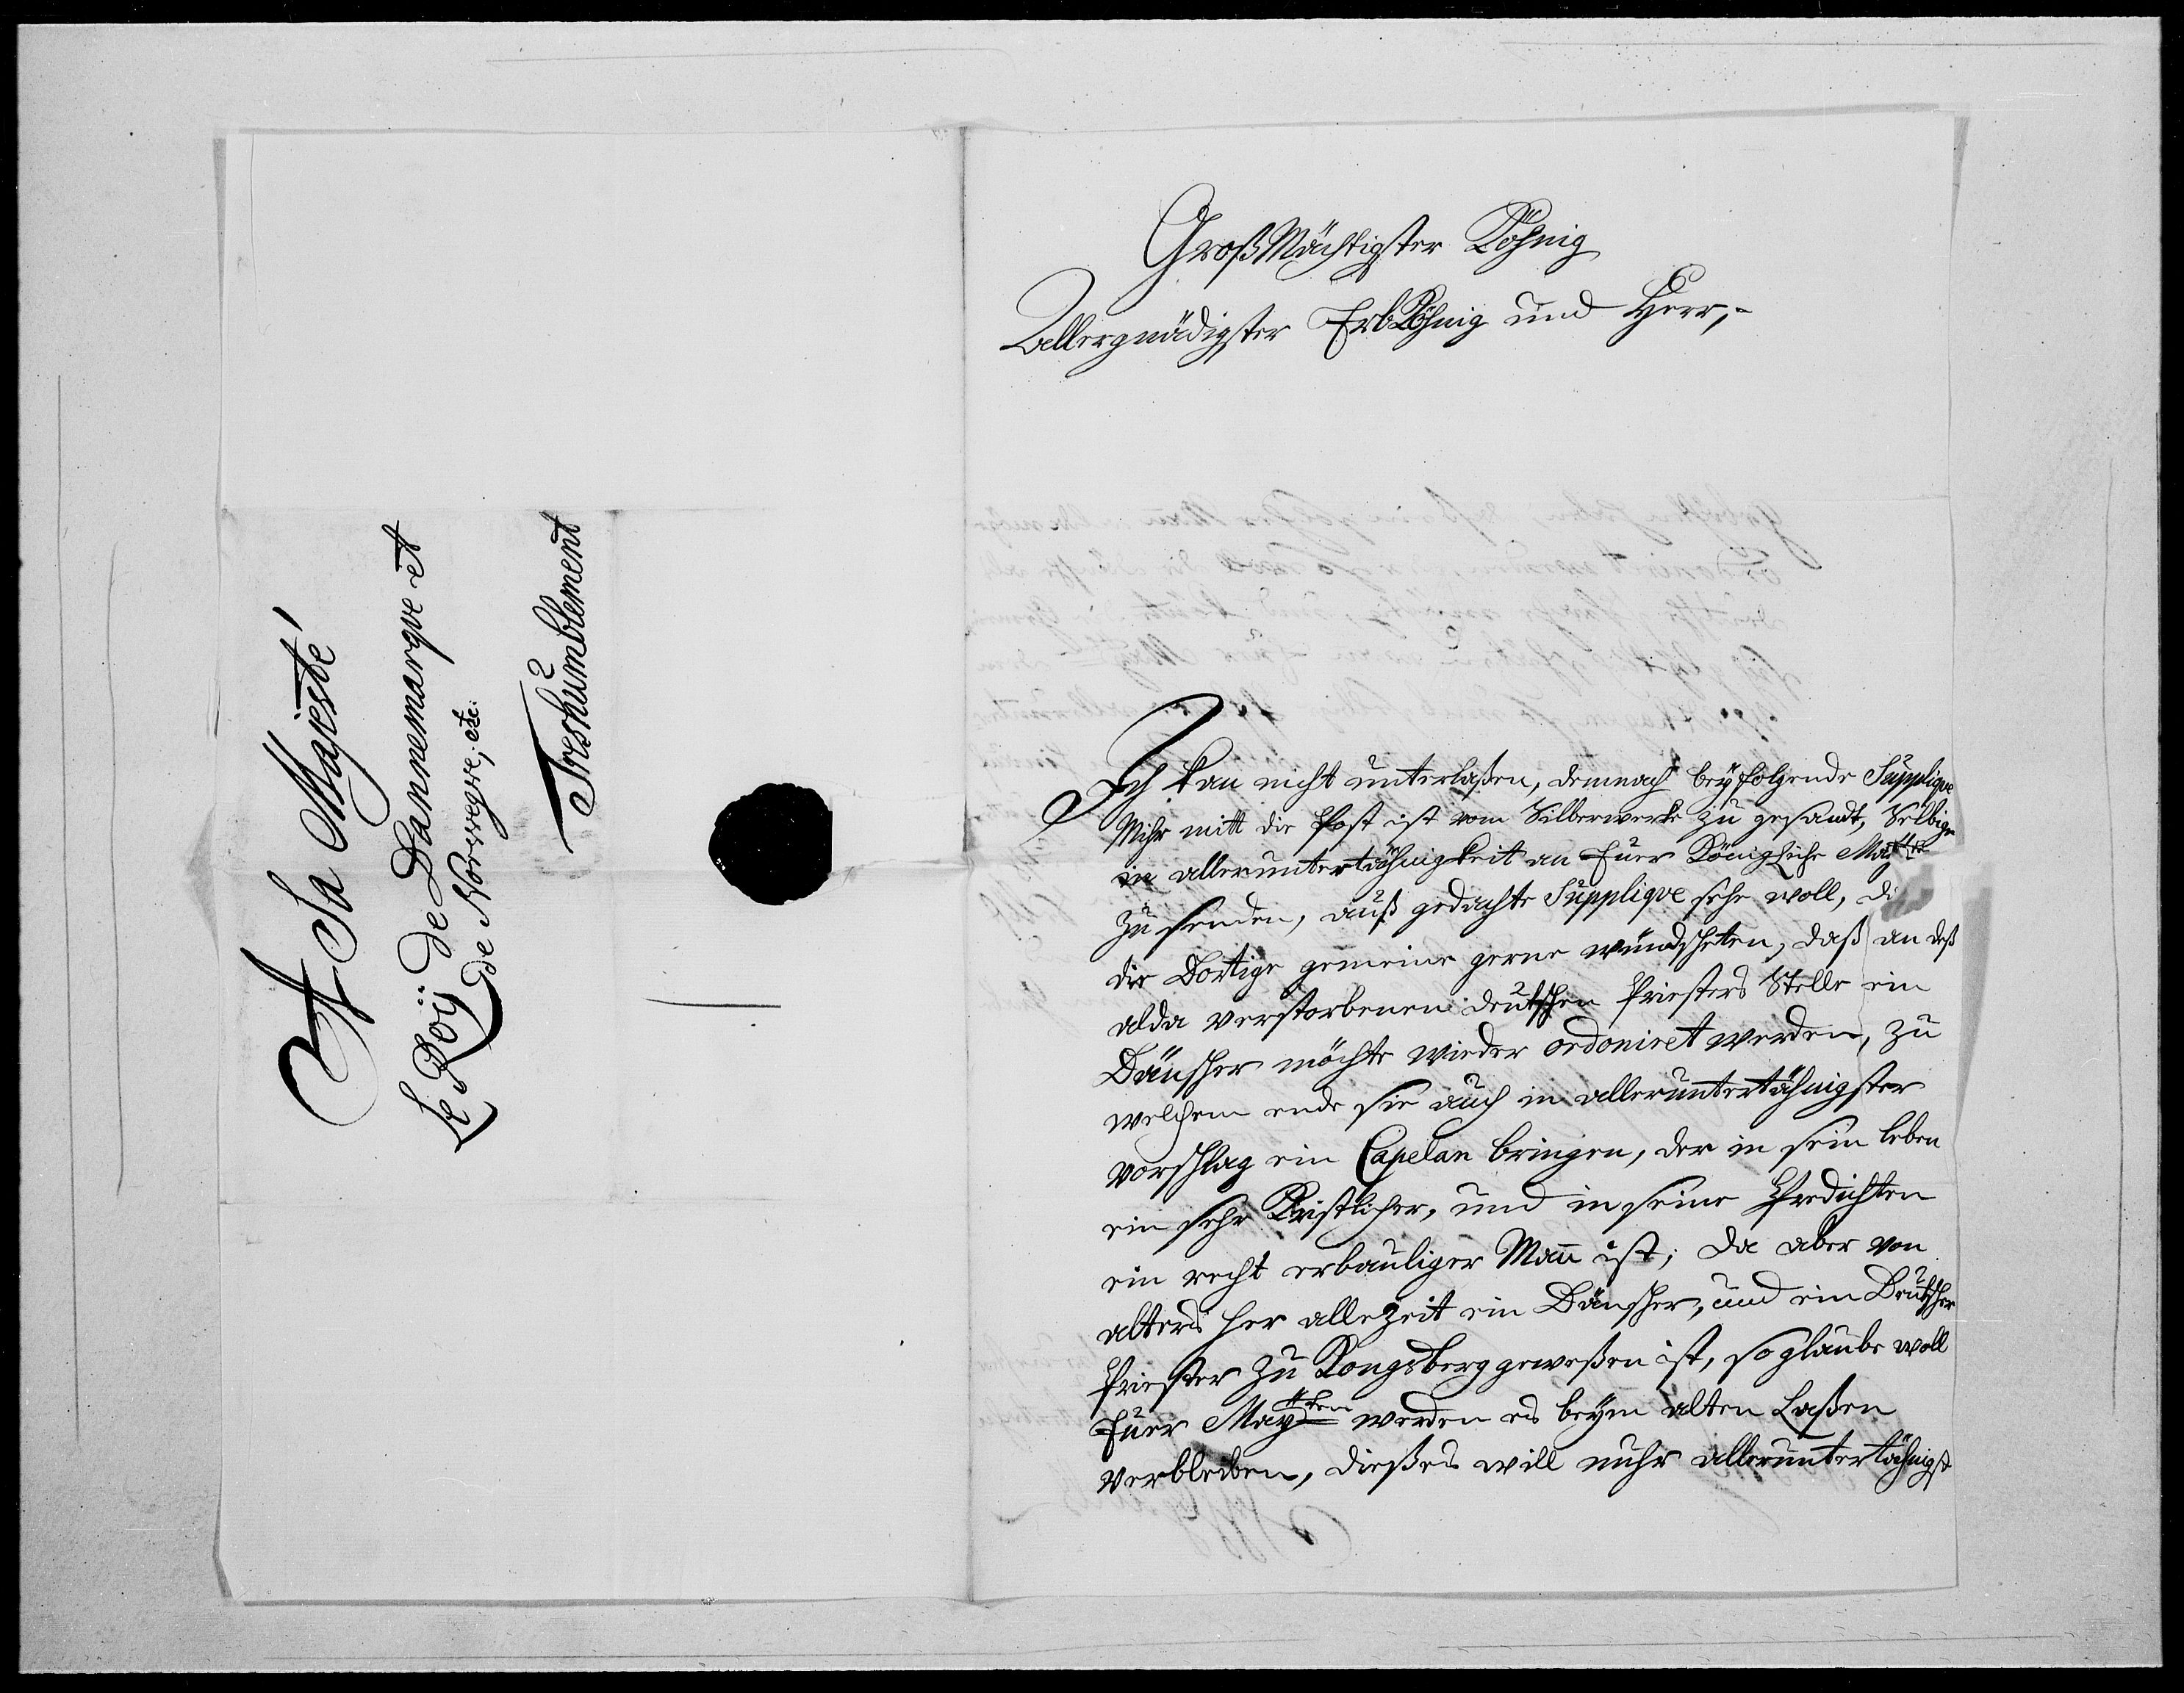 A Sa Majesté
Le Roÿ de Dannemarqve et
de Norwegve, etc:
Treshumblement
GroßMächtigster Köhnig
Allergnädigster ErbKöhnig und Herr,-
Ich kan nicht unterlaßen, demnach beÿfolgende Supplique
Mihr mitt die Post ist vom Silberwerke zu gesandt, Selbige
in alleruntertähnigkeit an Euer Königliche Maÿtt
zu senden, auß gedachte Supplique sehe woll, di
die Dortige gemeine gerne wündscheten, daß an deß
alda verstorbenen deutschen Priesters Stelle ein
Dänscher möchte wieder ordoniret werden, zu
welchem ende sie auch in alleruntertähnigster
vorschlag ein Capelan bringen, der in sein leben
ein sehr Kristlicher, und in seine Predichten
ein recht erbauliger Man̄ ist; da aber von
alters her allezeit ein Dänscher, und ein Deutscher
Priester zu Kongsberg geweßen ist, so glaube woll
Euer Maÿtten werden es beÿm alten Laßen
verbleiben, dießes will nuhr alleruntertähnigst